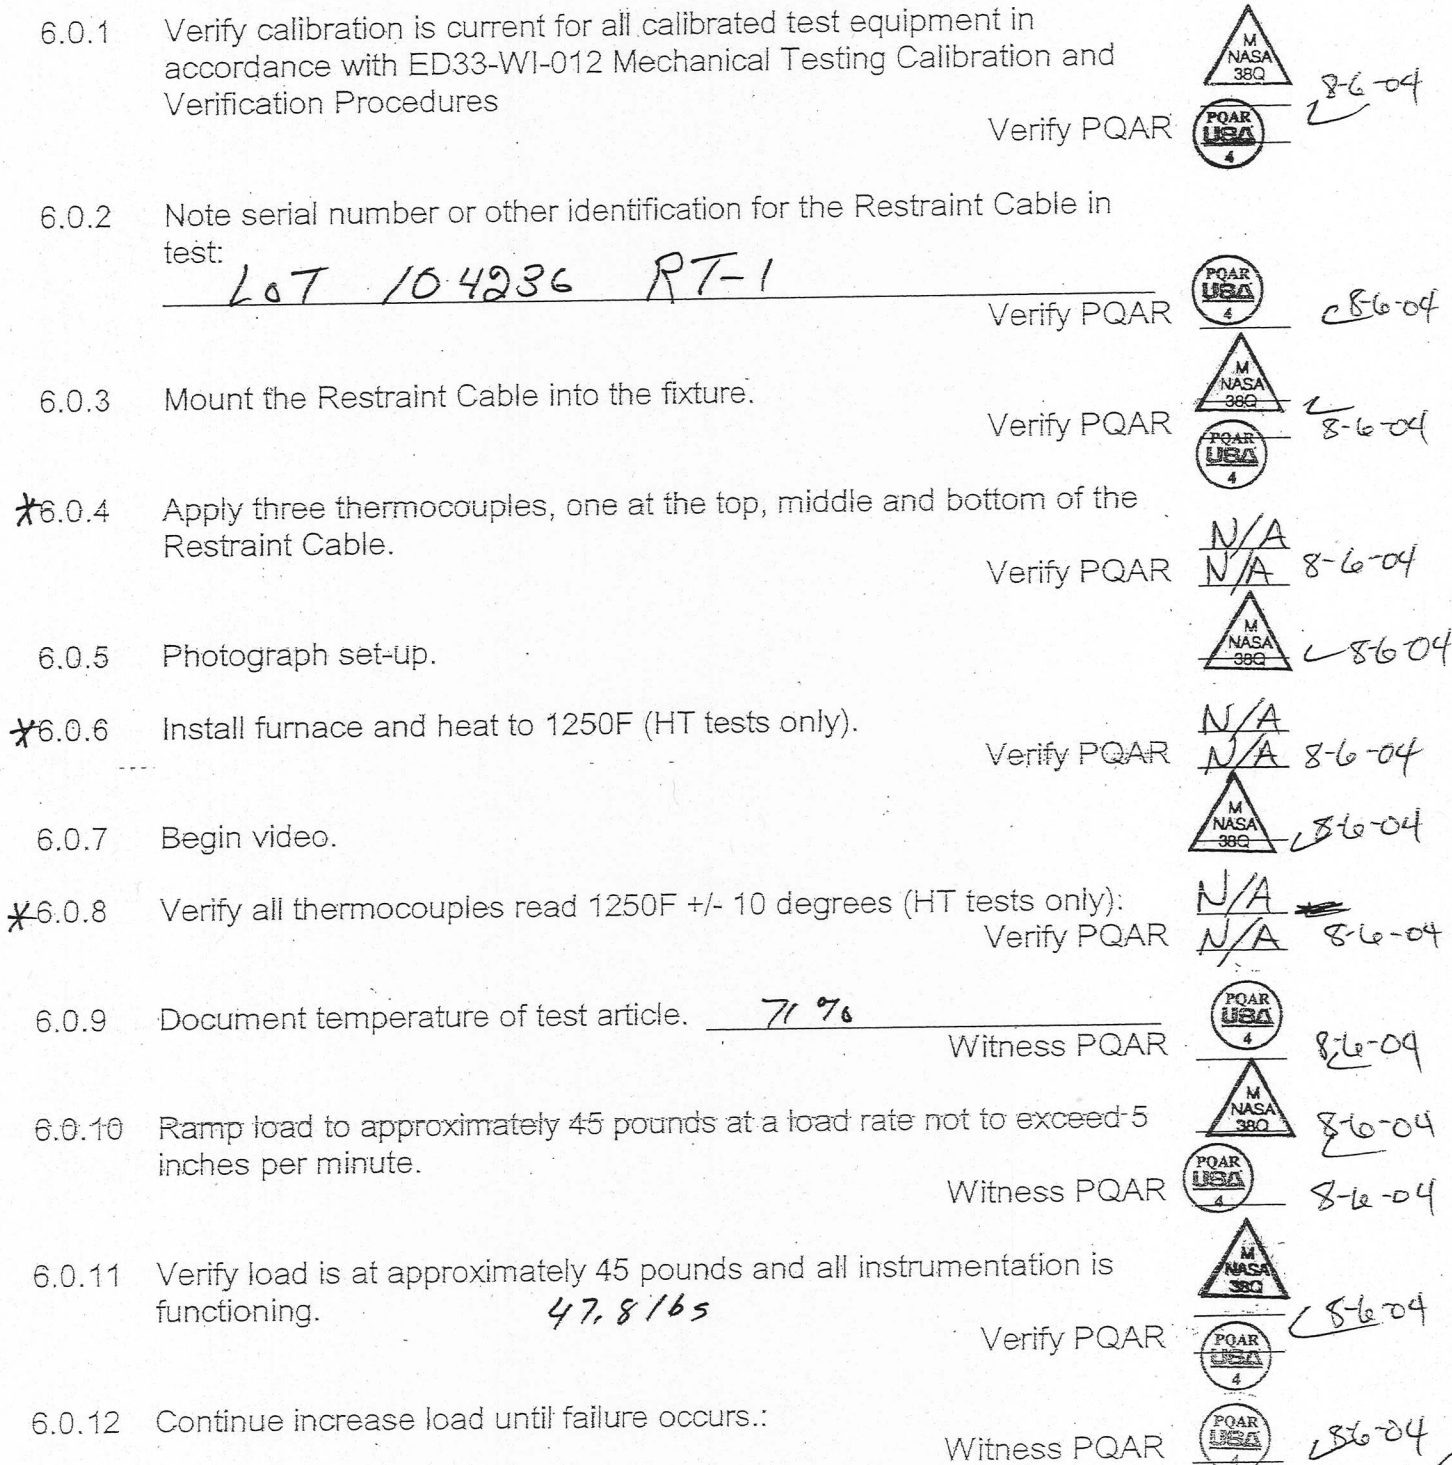 6.0.1 Verify calibration is current for all calibrated test equipment in
accordance with ED33-WI-012 Mechanical Testing Calibration and
Verification Procedures
M
NASA
38Q
8-6-04
Verify PQAR
PQAR
USA
4
6.0.2 Note serial number or other identification for the Restraint Cable in
test:
LOT 104236 RT-1
Verify PQAR
PQAR
USA
4
8-6-04
6.0.3 Mount the Restraint Cable into the fixture.
M
NASA
38Q
Verify PQAR
8-6-04
PQAR
USA
4
*6.0.4 Apply three thermocouples, one at the top, middle and bottom of the
Restraint Cable.
N/A
Verify PQAR N/A 8-6-04
6.0.5 Photograph set-up.
M
NASA
38Q
8-6-04
*6.0.6 Install furnace and heat to 1250F (HT tests only).
N/A
Verify PQAR N/A 8-6-04
6.0.7 Begin video.
M
NASA
38Q
8-6-04
*6.0.8 Verify all thermocouples read 1250F +/- 10 degrees (HT tests only):
N/A
Verify PQAR N/A 8-6-04
6.0.9 Document temperature of test article. 71 %
Witness PQAR
PQAR
USA
4
8-6-04
6.0.10 Ramp load to approximately 45 pounds at a load rate not to exceed 5
inches per minute.
M
NASA
38Q
8-6-04
Witness PQAR
PQAR
USA
4
8-6-04
6.0.11 Verify load is at approximately 45 pounds and all instrumentation is
functioning. 47.8 lbs
M
NASA
38Q
8-6-04
Verify PQAR
PQAR
USA
4
6.0.12 Continue increase load until failure occurs.:
Witness PQAR
PQAR
USA
4
8-6-04